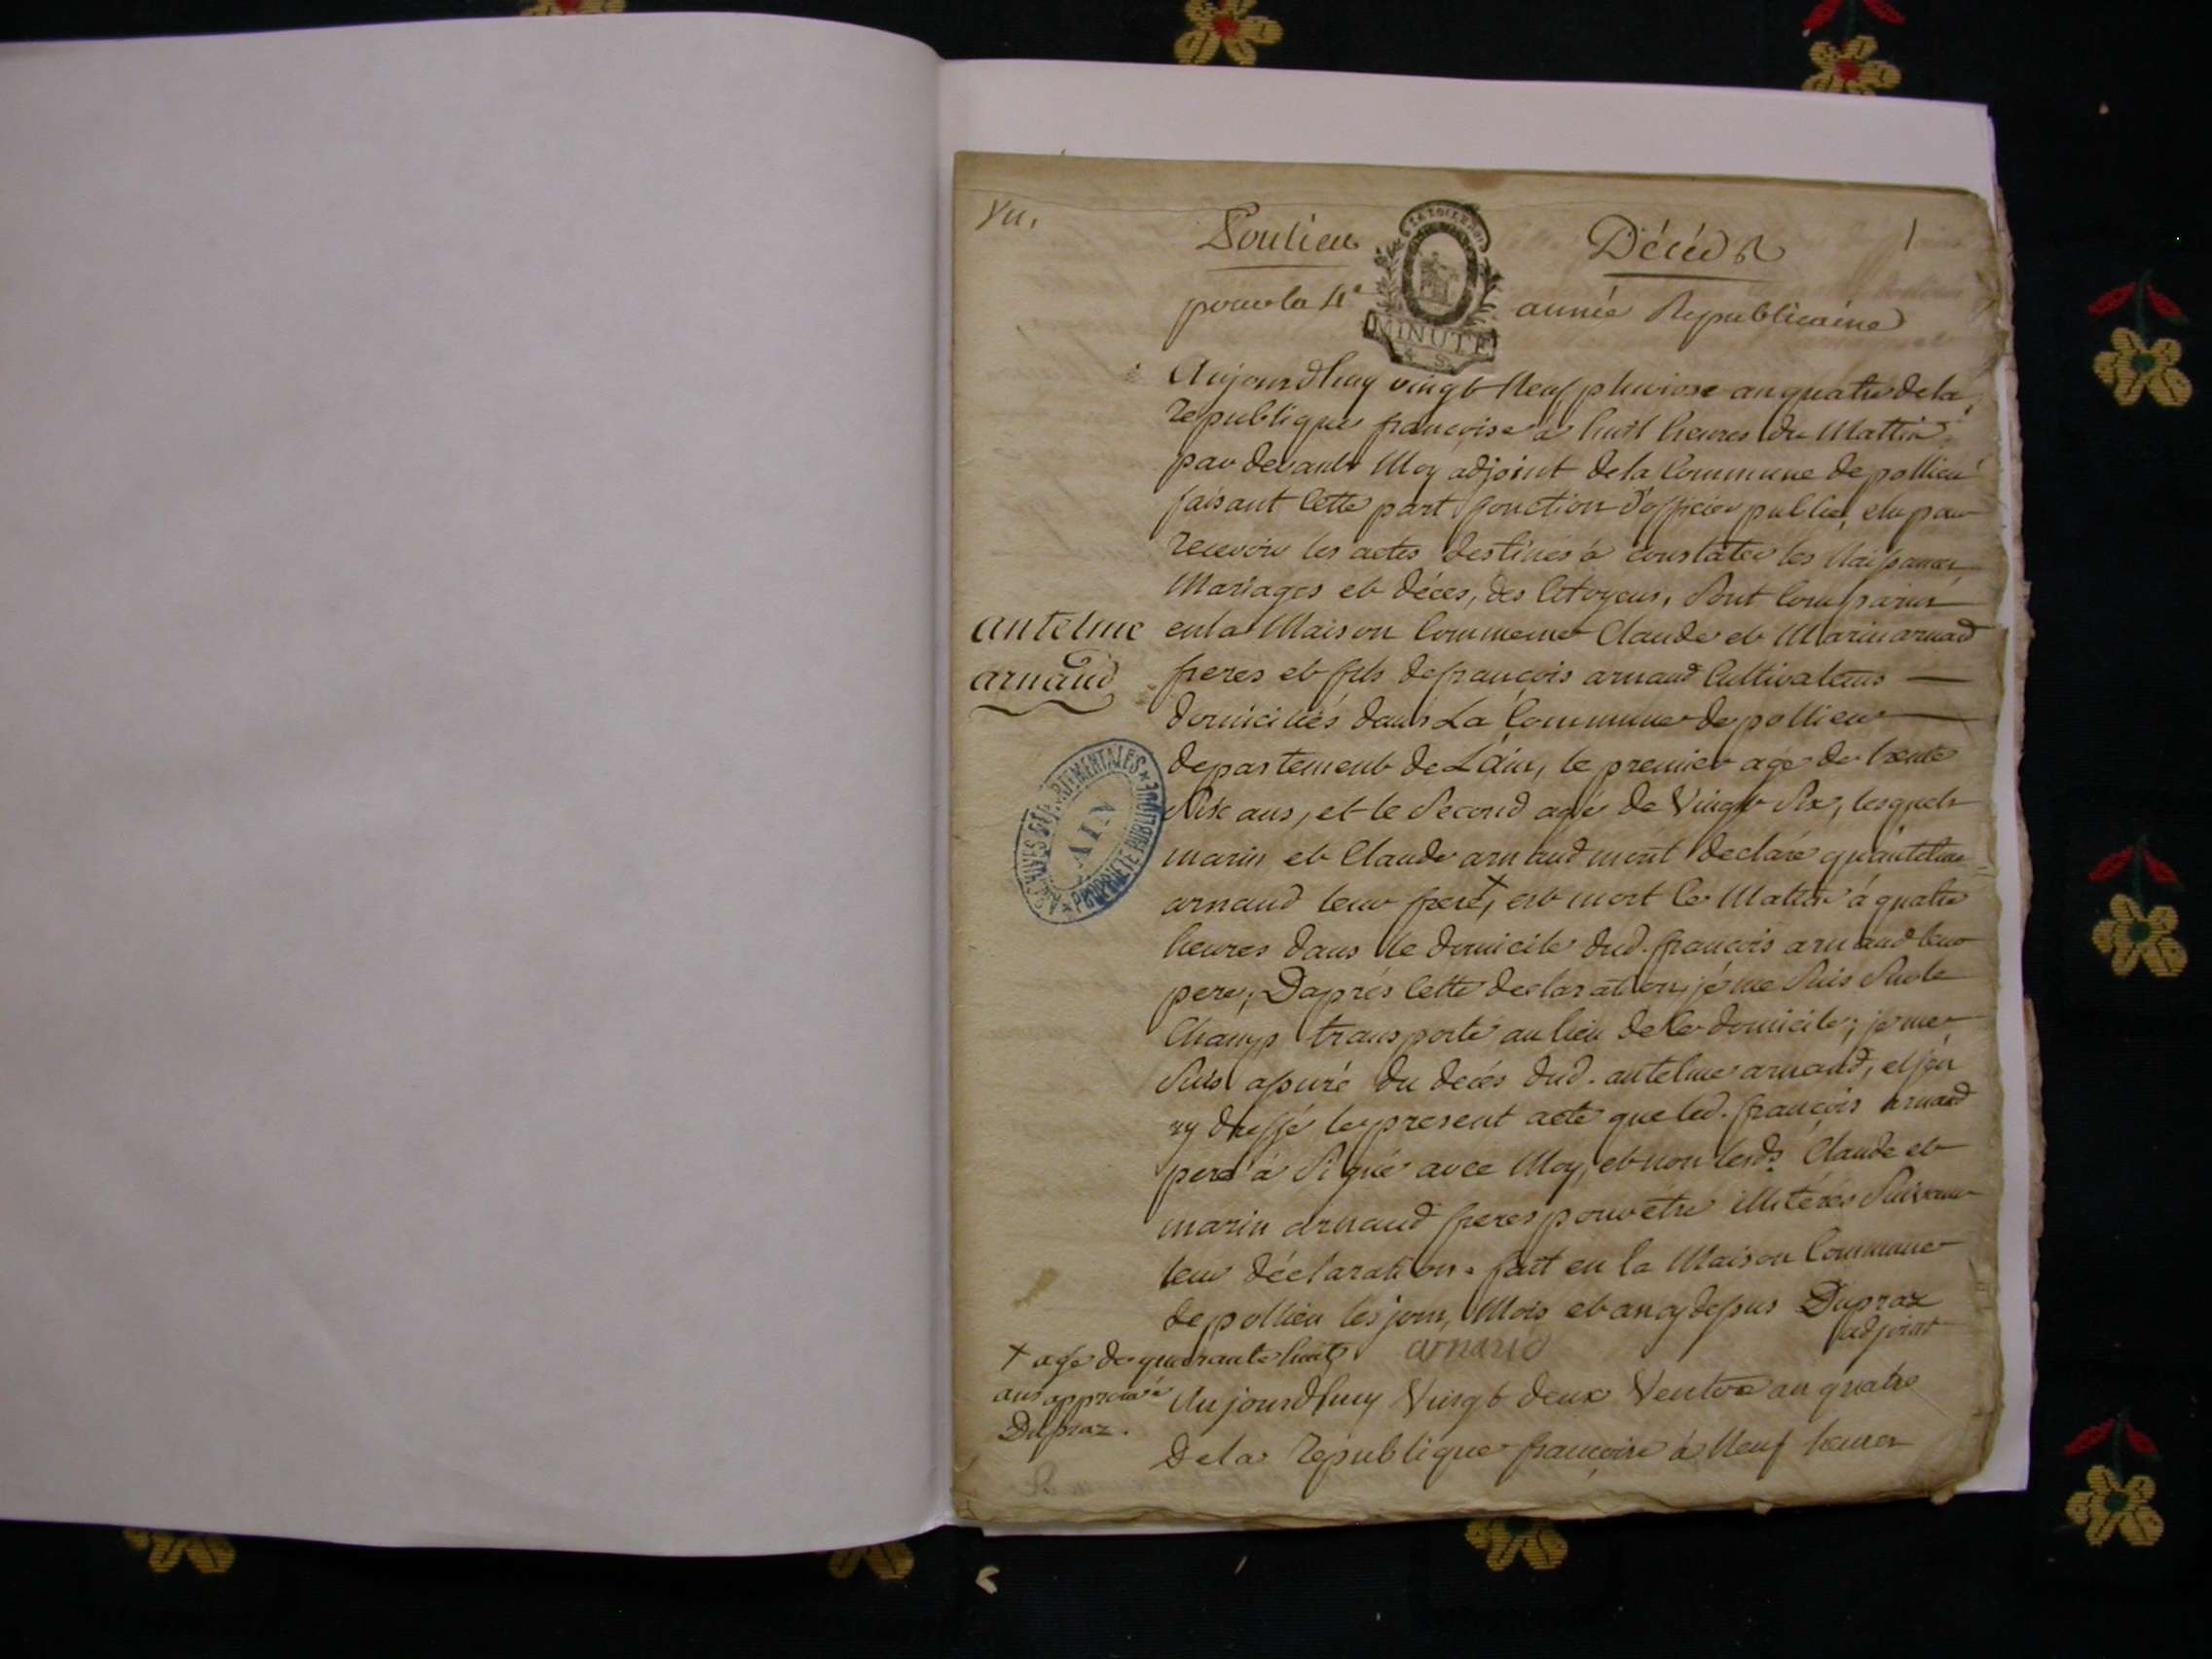 Vu,
Poulieu Décéds 1
LA LOI LE ROI
pour la 4e année Republicaine
MINUTE
4 S.
Aujourdhuy vingt Neuf pluviose an quatre de la
republique francoise a huit heures du Mattin
par devant Moy adjoint de la Commune de pollieu
faisant cette part fonction d'officier public, elu pour
recevoir les actes destinés à constater les Naissances
Mariages et déces, des Citoyens, Sont Comparus
antelme
arnaud
en la Maison Commune Claude et Marin arnaud
freres et fils de francois arnaud Cultivateurs
domiciliés dans La Commune de pollieu
departement de Lain, le premier agé de trente
Six ans, et le Second agé de Vingt Six, lesquels
marin et Claude arnaud mont declaré qu'antelme
arnaud leur frere +, est mort ce Mattin à quatre
heures dans le domicile dud. francois arnaud leur
pere; D'aprés Cette declaration, je me Suis Sur le
Champ transporté au lieu de ce domicile; je me
Suis assuré du decés dud. antelme arnaud, et j'en
ay dressé le present acte que led. françois arnaud
pere a Signé avec Moy, et non lesds. Claude et
marin arnaud freres pour être illitérés Suivant
leur déclaration. fait en la Maison Commune
de pollieu les jour, Mois et an cy dessus Dupraz
adjoint
arnaud
+ agé de quarante huit
ans approuvé
Dupraz.
Aujourdhuy Vingt deux Ventose an quatre
De la République francoise à Neuf heures
ARCHIVES DEPARTEMENTALES
AIN
PROPRIETE PUBLIQUE